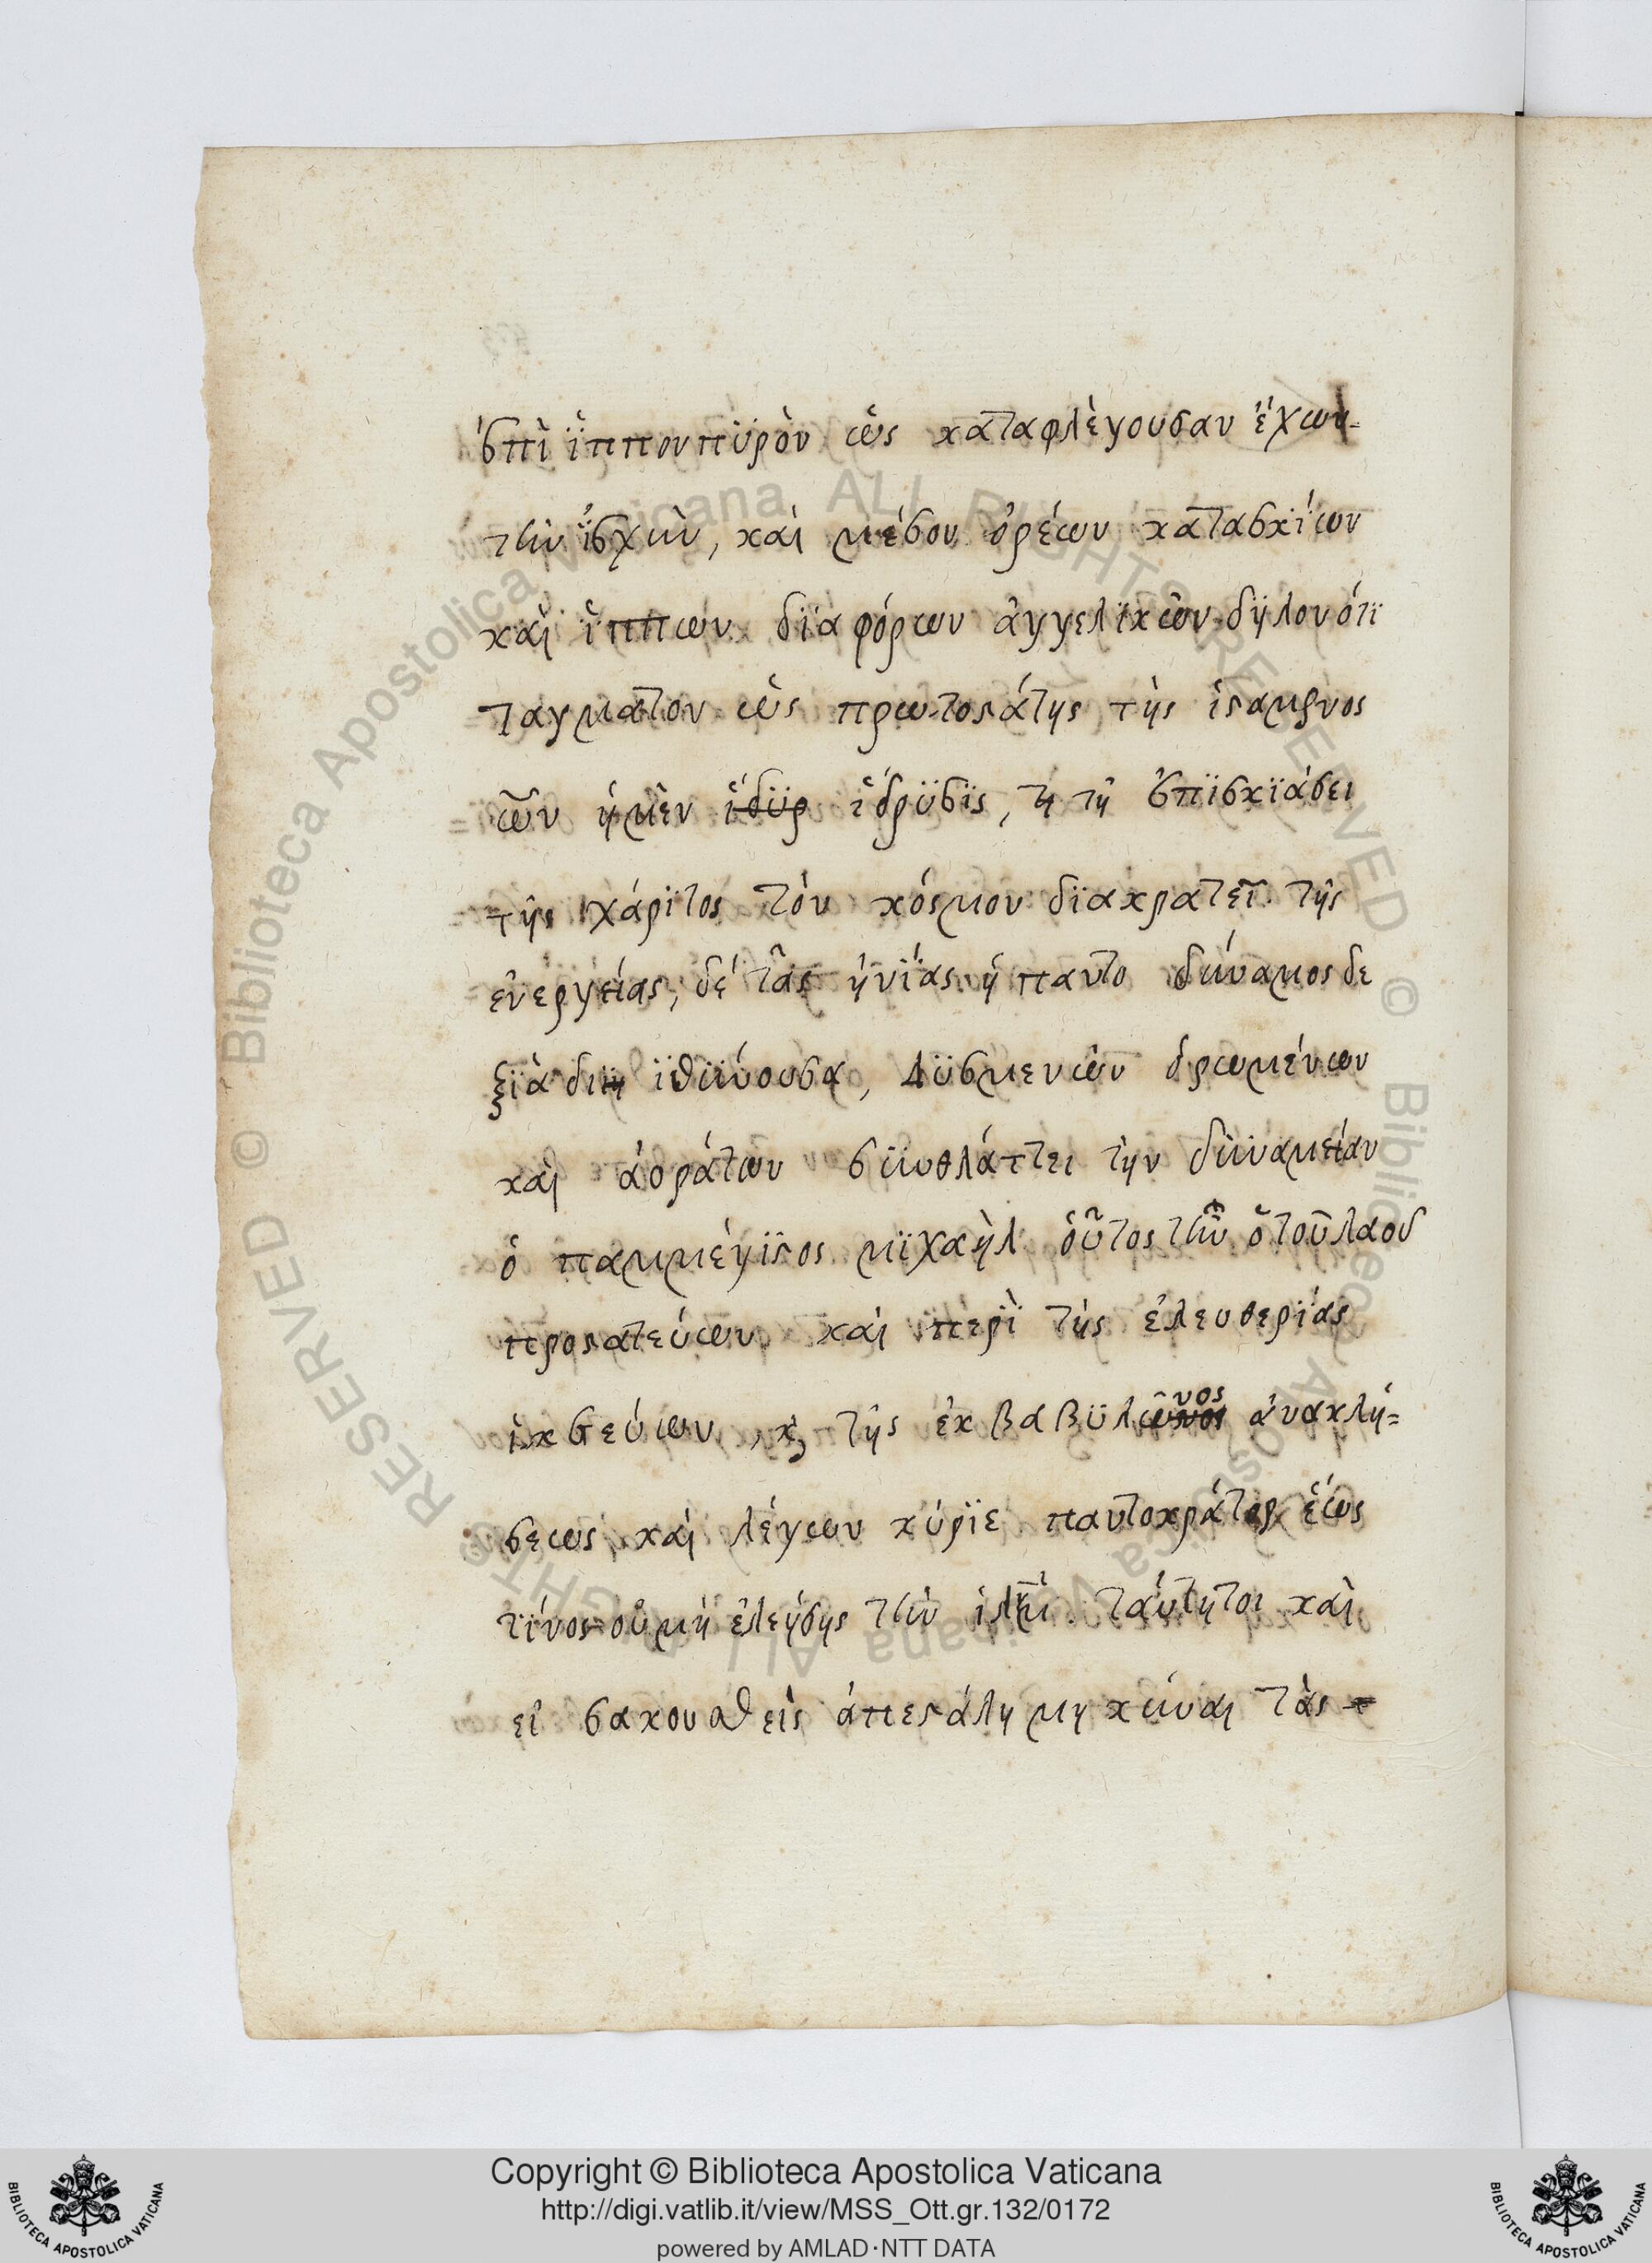 ἐπῒ ἵππον πϋρὸν ὡς καταφλέγουσαν ἔχων
τὴν ἰσχϋν, καὶ μέσον ὀρέων κατασκΐων
καὶ ἵππων διαφόρων ἀγγελϊκῶν δϋλονότϊ
ταγμάτον ὡς πρωτοστάτης τῆς ἱσταμένος
ὧν ἡμὲν ἵδρϋσϊς, τῆ ἐπϊσκϊάσει
τῆς χάρϊτος τὸν κόσμον δϊακρατεῖ τῆς
ἐνεργείας, δέ τὰς ἡνΐας ἡ παντο δύναμος δε
ξϊὰ ϊθϋνουσα, δϋσμενῶν ὁρωμένων
καὶ ἀοράτων συνθλάττει τὴν δϋναμείαν
ὁ παμμέγϊστος μϊχαὴλ οὗτος ἦν ὁ τοῦ λαοῦ
προστατεύων καὶ περῒ τῆς ἐλευθερίας
ἱκετεύων, κ τῆς ἐκ βαβϋλῶνος ἀνακλή=
σεως καὶ λέγων κύρϊε παντοκράτορ ἕως
τίνος οὐ μὴ ἐλεήσης τὴν ἱλημ. ταύτητοι καὶ
εἰσακουσθεὶς ἀπεστάλη μηκύναι τὰς
Copyright © Biblioteca Apostolica Vaticana
http://digi.vatlib.it/view/MSS_Ott.gr.132/0172
powered by AMLAD·NTT DATA
BIBLIOTECA APOSTOLICA VATICANA
BIBLIOTECA APOSTOLICA VATICANA